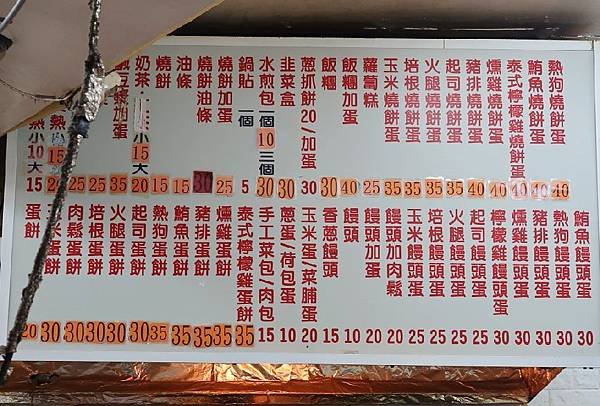 熱狗燒餅蛋 40
鮪魚燒餅蛋 40
泰式檸檬雞燒餅蛋 40
燻雞燒餅蛋 40
豬排燒餅蛋 40
起司燒餅蛋 35
火腿燒餅蛋 35
培根燒餅蛋 35
玉米燒餅蛋 35
蘿蔔糕 25
飯糰加蛋 40
飯糰 30
蔥抓餅20/加蛋 30
韭菜盒 30
水煎包一個10三個 30
鍋貼 一個 5
燒餅加蛋 25
燒餅油條 30
油條 15
燒餅 15
奶茶 小15大 20
豆漿加蛋 35
25
25
熱 15 20
熱小10大 15
鮪魚饅頭蛋 30
熱狗饅頭蛋 30
豬排饅頭蛋 30
燻雞饅頭蛋 30
檸檬雞饅頭蛋 30
起司饅頭蛋 25
火腿饅頭蛋 25
培根饅頭蛋 25
玉米饅頭蛋 25
饅頭加肉鬆 20
饅頭加蛋 20
饅頭 10
香蔥饅頭 15
玉米蛋/菜脯蛋 20
蔥蛋/荷包蛋 10
手工菜包/肉包 15
泰式檸檬雞蛋餅 35
燻雞蛋餅 35
豬排蛋餅 35
鮪魚蛋餅 35
熱狗蛋餅 35
起司蛋餅 30
火腿蛋餅 30
培根蛋餅 30
肉鬆蛋餅 30
蛋餅 30
蛋餅 20